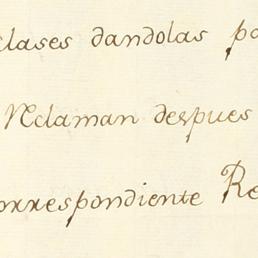 clases dandolas pa
Reclaman despues
orrespondiente Re